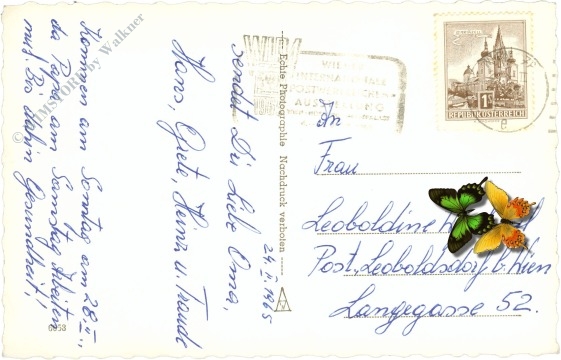 Kommen am Sonntag am 28.II.,
da Papa am Samstag Arbeiten
muß. Bis dahin Gesundheit!
sendet Dir Liebe Oma,
Hans, Grete, Heinz u. Traude
24.II.1965
Echte Photographie Nachdruck verboten
6958
WIPA
WIENER
INTERNATIONALE
POSTWERTZEICHEN
AUSSTELLUNG
REPUBLIK ÖSTERREICH
1S
An
Frau
Leopoldine
Post, Leopoldsdorf b. Wien
Langegasse 52.
© FILMSTORE by Walkner